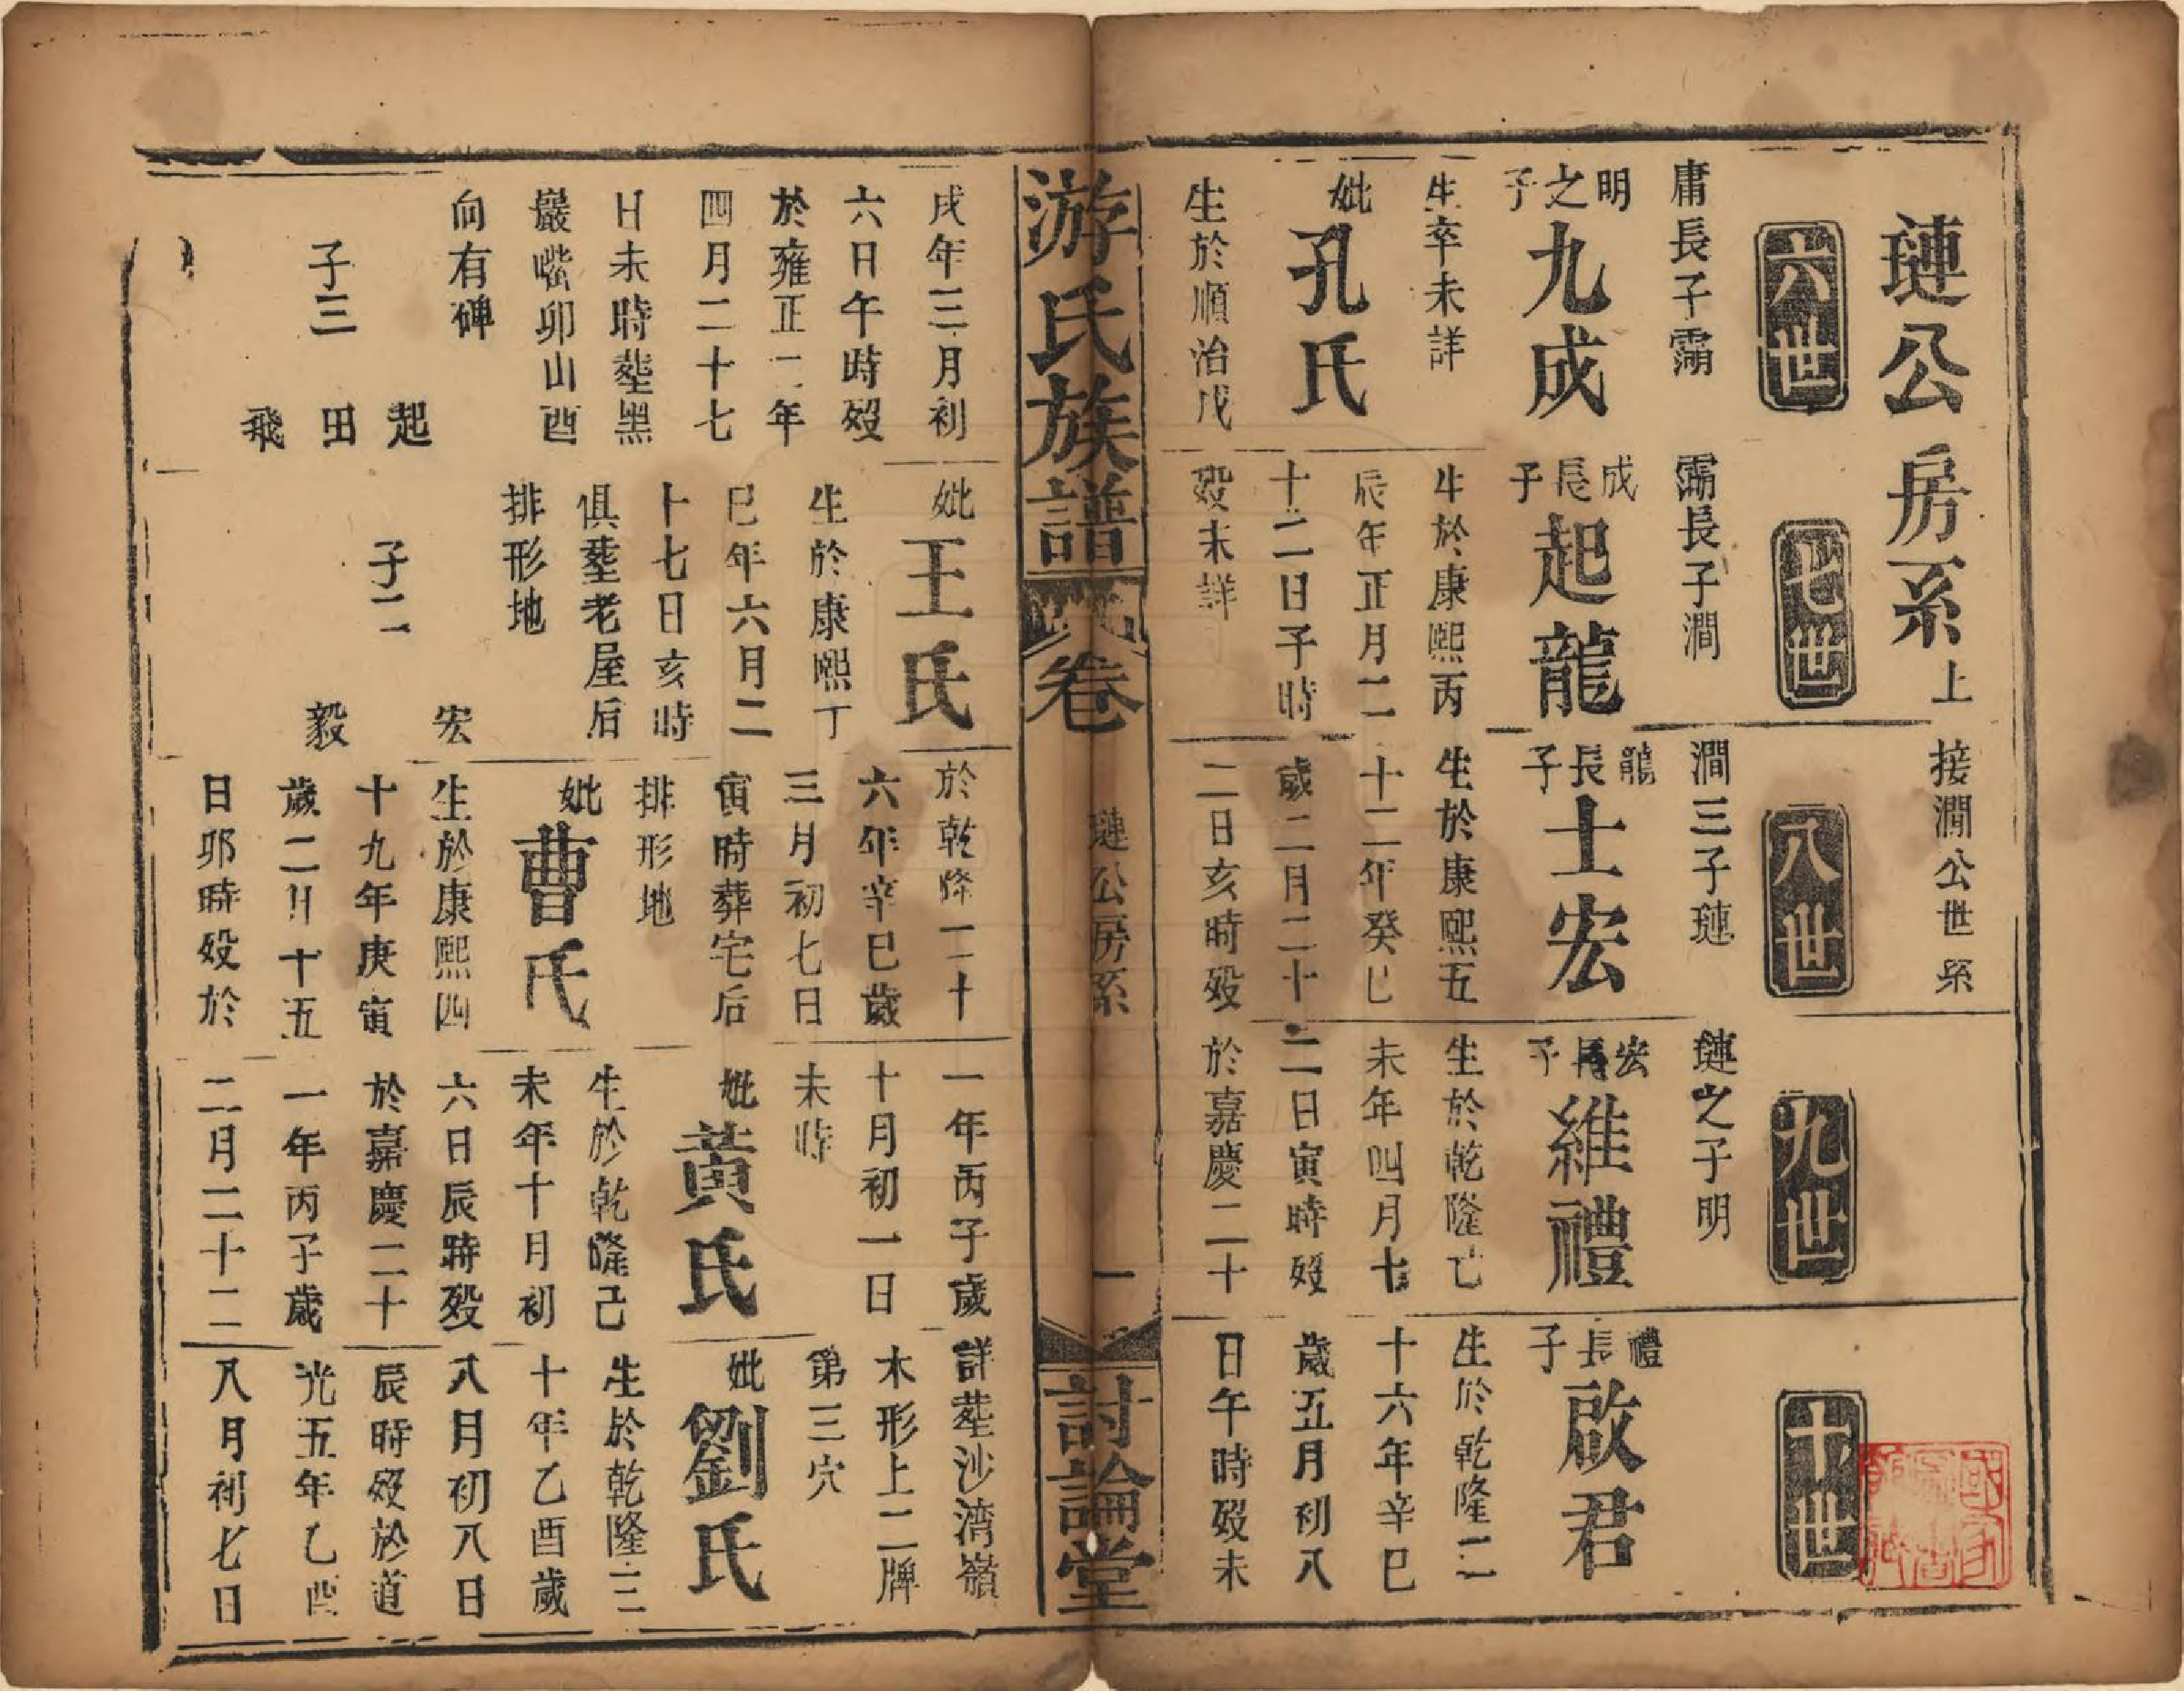 璉公房系上
接澗公世系
六世
七世
八世
九世
十世
庸長子霈
明之子
九成
生卒未詳
妣
孔氏
生於順治戊
霈長子澗
成長子
起龍
生於康熙丙
辰年正月二
十二日子時
歿未詳
澗三子璉
龍長子
士宏
生於康熙五
十二年癸巳
歲二月二十
二日亥時歿
璉之子明
宏長子
維禮
生於乾隆乙
未年四月七
二日寅時歿
於嘉慶二十
禮長子
啟君
生於乾隆二
十六年辛巳
歲五月初八
日午時歿未
游氏族譜
卷
璉公房系
一
討論堂
戌年三月初
六日午時歿
於雍正二年
四月二十七
日未時塟黑
巖嘴卯山酉
向有碑
子三
起
田
飛
妣
王氏
生於康熙丁
巳年六月二
十七日亥時
俱塟老屋后
排形地
子二
宏
毅
於乾隆二十
六年辛巳歲
三月初七日
寅時葬宅后
排形地
妣
曹氏
生於康熙四
十九年庚寅
歲二月十五
日卯時歿於
一年丙子歲
十月初一日
未時
妣
黃氏
生於乾隆己
未年十月初
六日辰時歿
於嘉慶二十
一年丙子歲
二月二十二
詳塟沙湾嶺
木形上二牌
第三穴
妣
劉氏
生於乾隆三
十年乙酉歲
八月初八日
辰時歿於道
光五年乙酉
八月初七日